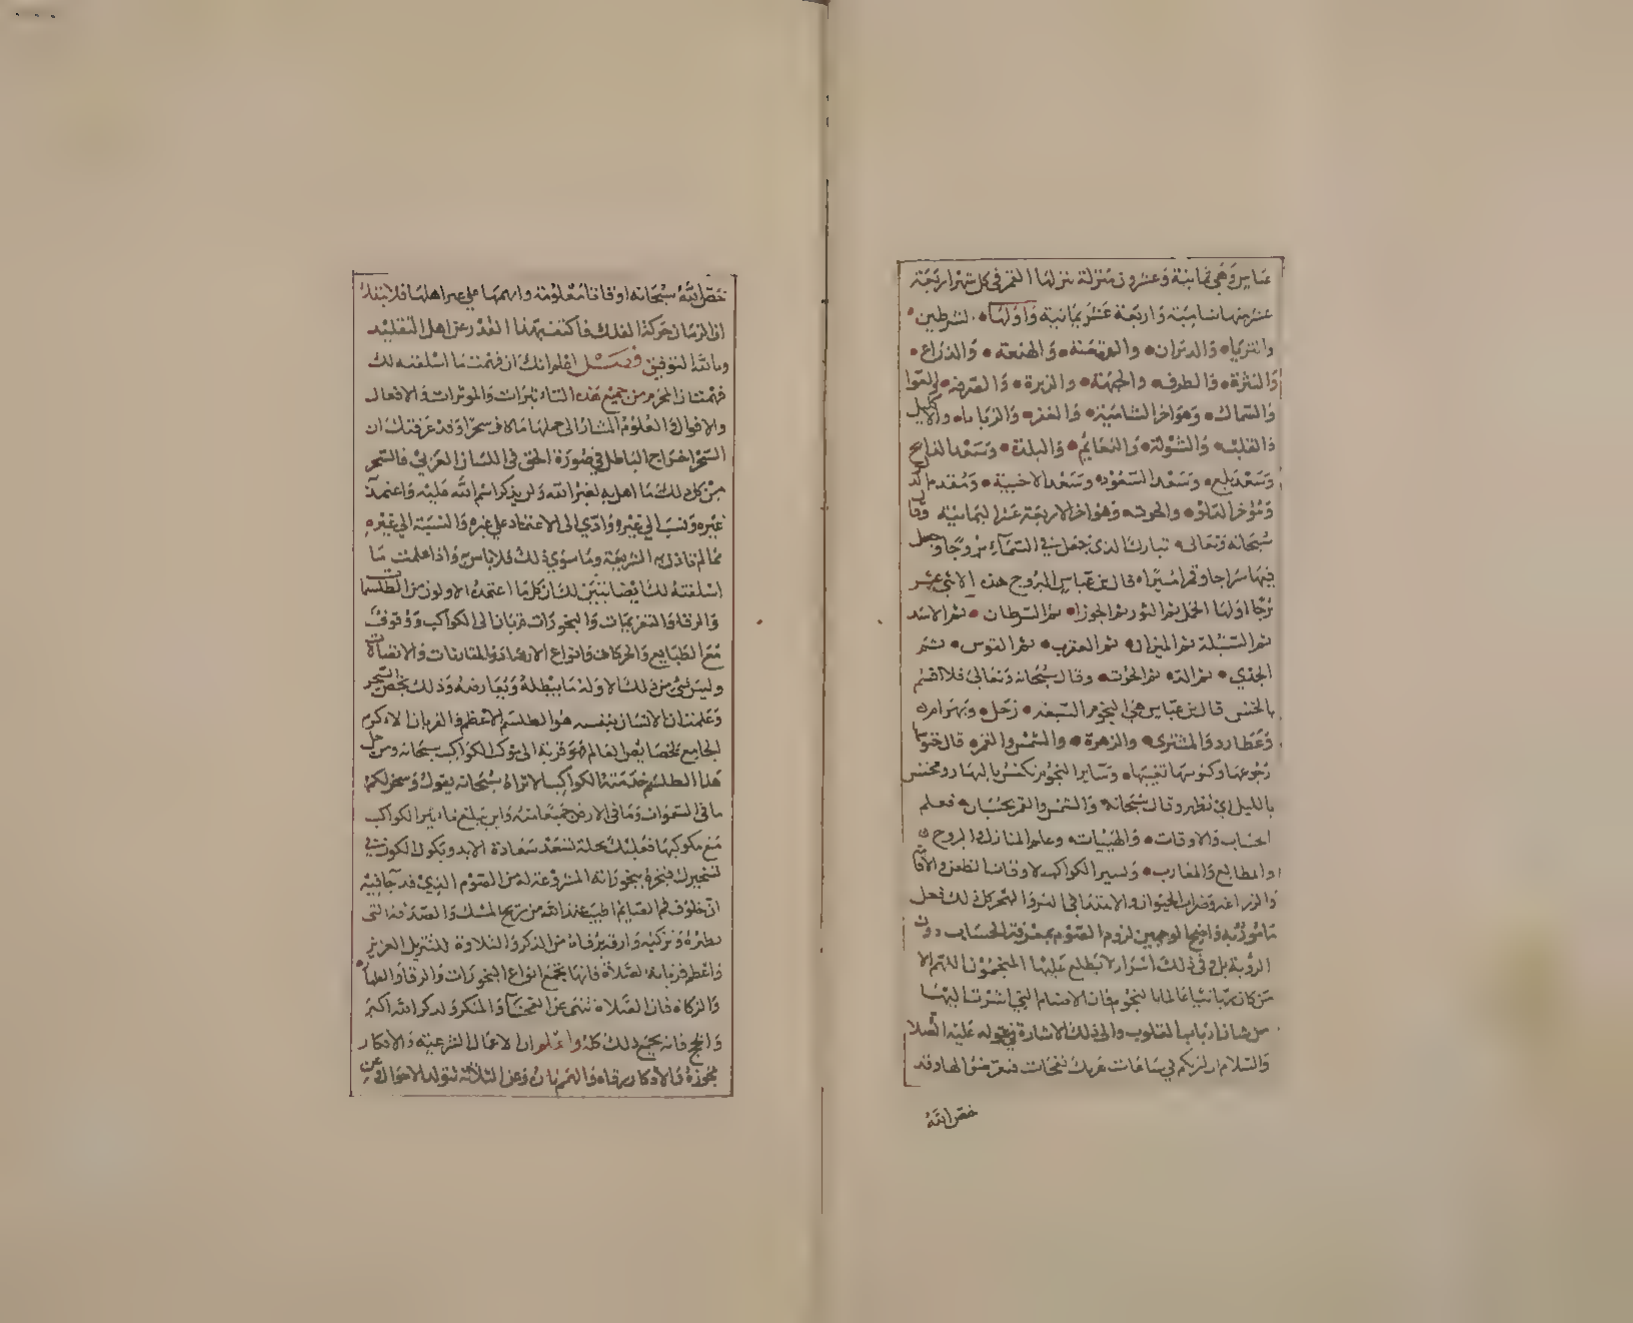 عباس وهي ثمانية وعشرون منزلة ينزلها القمر في كل شهر اربعة
عشر منها شامية واربعة عشر يمانية واولها الشرطين
والثريا والدبران والهقعة والهنعة والذراع
والنثرة والطرف والجبهة والزبرة والصرفة والعوا
والسماك وهو اخر الشامية والغفر والزبانا والاكليل
والقلب والشولة والنعايم والبلدة وسعد الذابح
وسعد بلع وسعد السعود وسعد الاخبية ومقدم الدلو
ومؤخر الدلو والحوت وهو اخر الاربعة عشر اليمانية وقال
سبحانه وتعالى تبارك الذي جعل في السماء بروجا وجعل
فيها سراجا وقمرا منيرا قال بن عباس البروج هذه الاثني عشر
برجا اولها الحمل ثم الثور ثم الجوزا ثم السرطان ثم الاسد
ثم السنبلة ثم الميزان ثم العقرب ثم القوس ثم
الجدي ثم الدلو ثم الحوت وقال سبحانه وتعالى فلا اقسم
بالخنس قال بن عباس هي النجوم السبعة زحل وبهرام
وعطارد والمشتري والزهرة والشمس والقمر قال
رجوعها وكنوسها تغيبها وساير النجوم تكنس بالنهار وتخنس
بالليل اي تظهر وقال سبحانه والشمس والقمر بحسبان فعلم
الحساب والاوقات والهيبات وعلم المنازل والبروج
والمطالع والمغارب وتسيير الكواكب لاوقات الظعن والاقا
والزراعة وضراب الحيوان والاهتدا في البر والبحر كل ذلك فعل
مامور به واضح لوجهين لزوم الصوم بمعرفة الحساب دون
الرؤية بل وفي ذلك اسرار لا يطلع عليها المنجمون اللهم الا
من كان ربانيا عالما بالنجوم فان الاقسام التي اشرنا اليها
من شان ارباب القلوب والى ذلك الاشارة في قوله عليه الصلا
والسلام ان لربكم في ساعات دهركم نفحات فتعرضوا لها وقد
خص الله
خص الله سبحانه اوقاتا معلومة وابهمها على غير اهلها فلا يقال
ان الزمان حركة الفلك فاكتف بهذا القدر عن اهل التقليد
وبالله التوفيق فصل اعلم انك ان فهمت ما اسلفته لك
فهمت ان المحرم من جميع هذه التاثيرات والموثرات والافعال
والاقوال والعلوم المشار الى جملها ما كان سحرا وقد عرفتك ان
السحر اخراج الباطل في صورة الحق في اللسان العربي فالسحر
من كل ذلك ما اهل به لغير الله ولم يذكر اسم الله عليه واعتمد
غيره ونسب الى غيره وادي الى الاعتماد على غيره والنسبة الى غيره
مما لم تاذن به الشريعة وما سوي ذلك فلا باس به واذا علمت ما
اسلفته لك ايضا تبين لك ان كل ما اعتمده الاولون من الطلسمات
والرقا والتعزيمات والبخورات قربان الى الكواكب ووقوف
مع الطبايع والحركات وانواع الارصاد والمقارنات والاتصالات
وليس شيء من ذلك الا وله ما يبطله ويعارضه وذلك يخص السحر
وعلمت ان الانسان بنفسه هو الطلسم الاعظم والقربان الاكرم
الجامع لخصايص العالم هو قربة الى مكوكب الكواكب سبحانه ومن حل
هذا الطلسم خدمته الكواكب الا تراه سبحانه يقول وسخر لكم
ما في السموات وما في الارض جميعا منه واين يبلغ تاثير الكواكب
مع مكوكبها فعليك بحله لتسعد سعادة الابد ويكون الكون في
تسخيرك فبخره ببخوراته المشروعة له من الصوم الذي قد جا فيه
ان خلوف فم الصايم اطيب عند الله من ريح المسك والصدقة التي
تطهره وتزكيه وارقه برقاه من الذكر والتلاوة للتنزيل العزيز
واعظم قربانه الصلاة فانها تجمع انواع البخورات والرقا والطها
والزكاة فان الصلاة تنهى عن الفحشا والمنكر ولذكر الله اكبر
والحج فانه يجمع ذلك كله واعلم ان الاعمال الشرعية والافكار
بخوره والاذكار رقاه والهم وعن الثلاثة تتولد الاحوال وعن